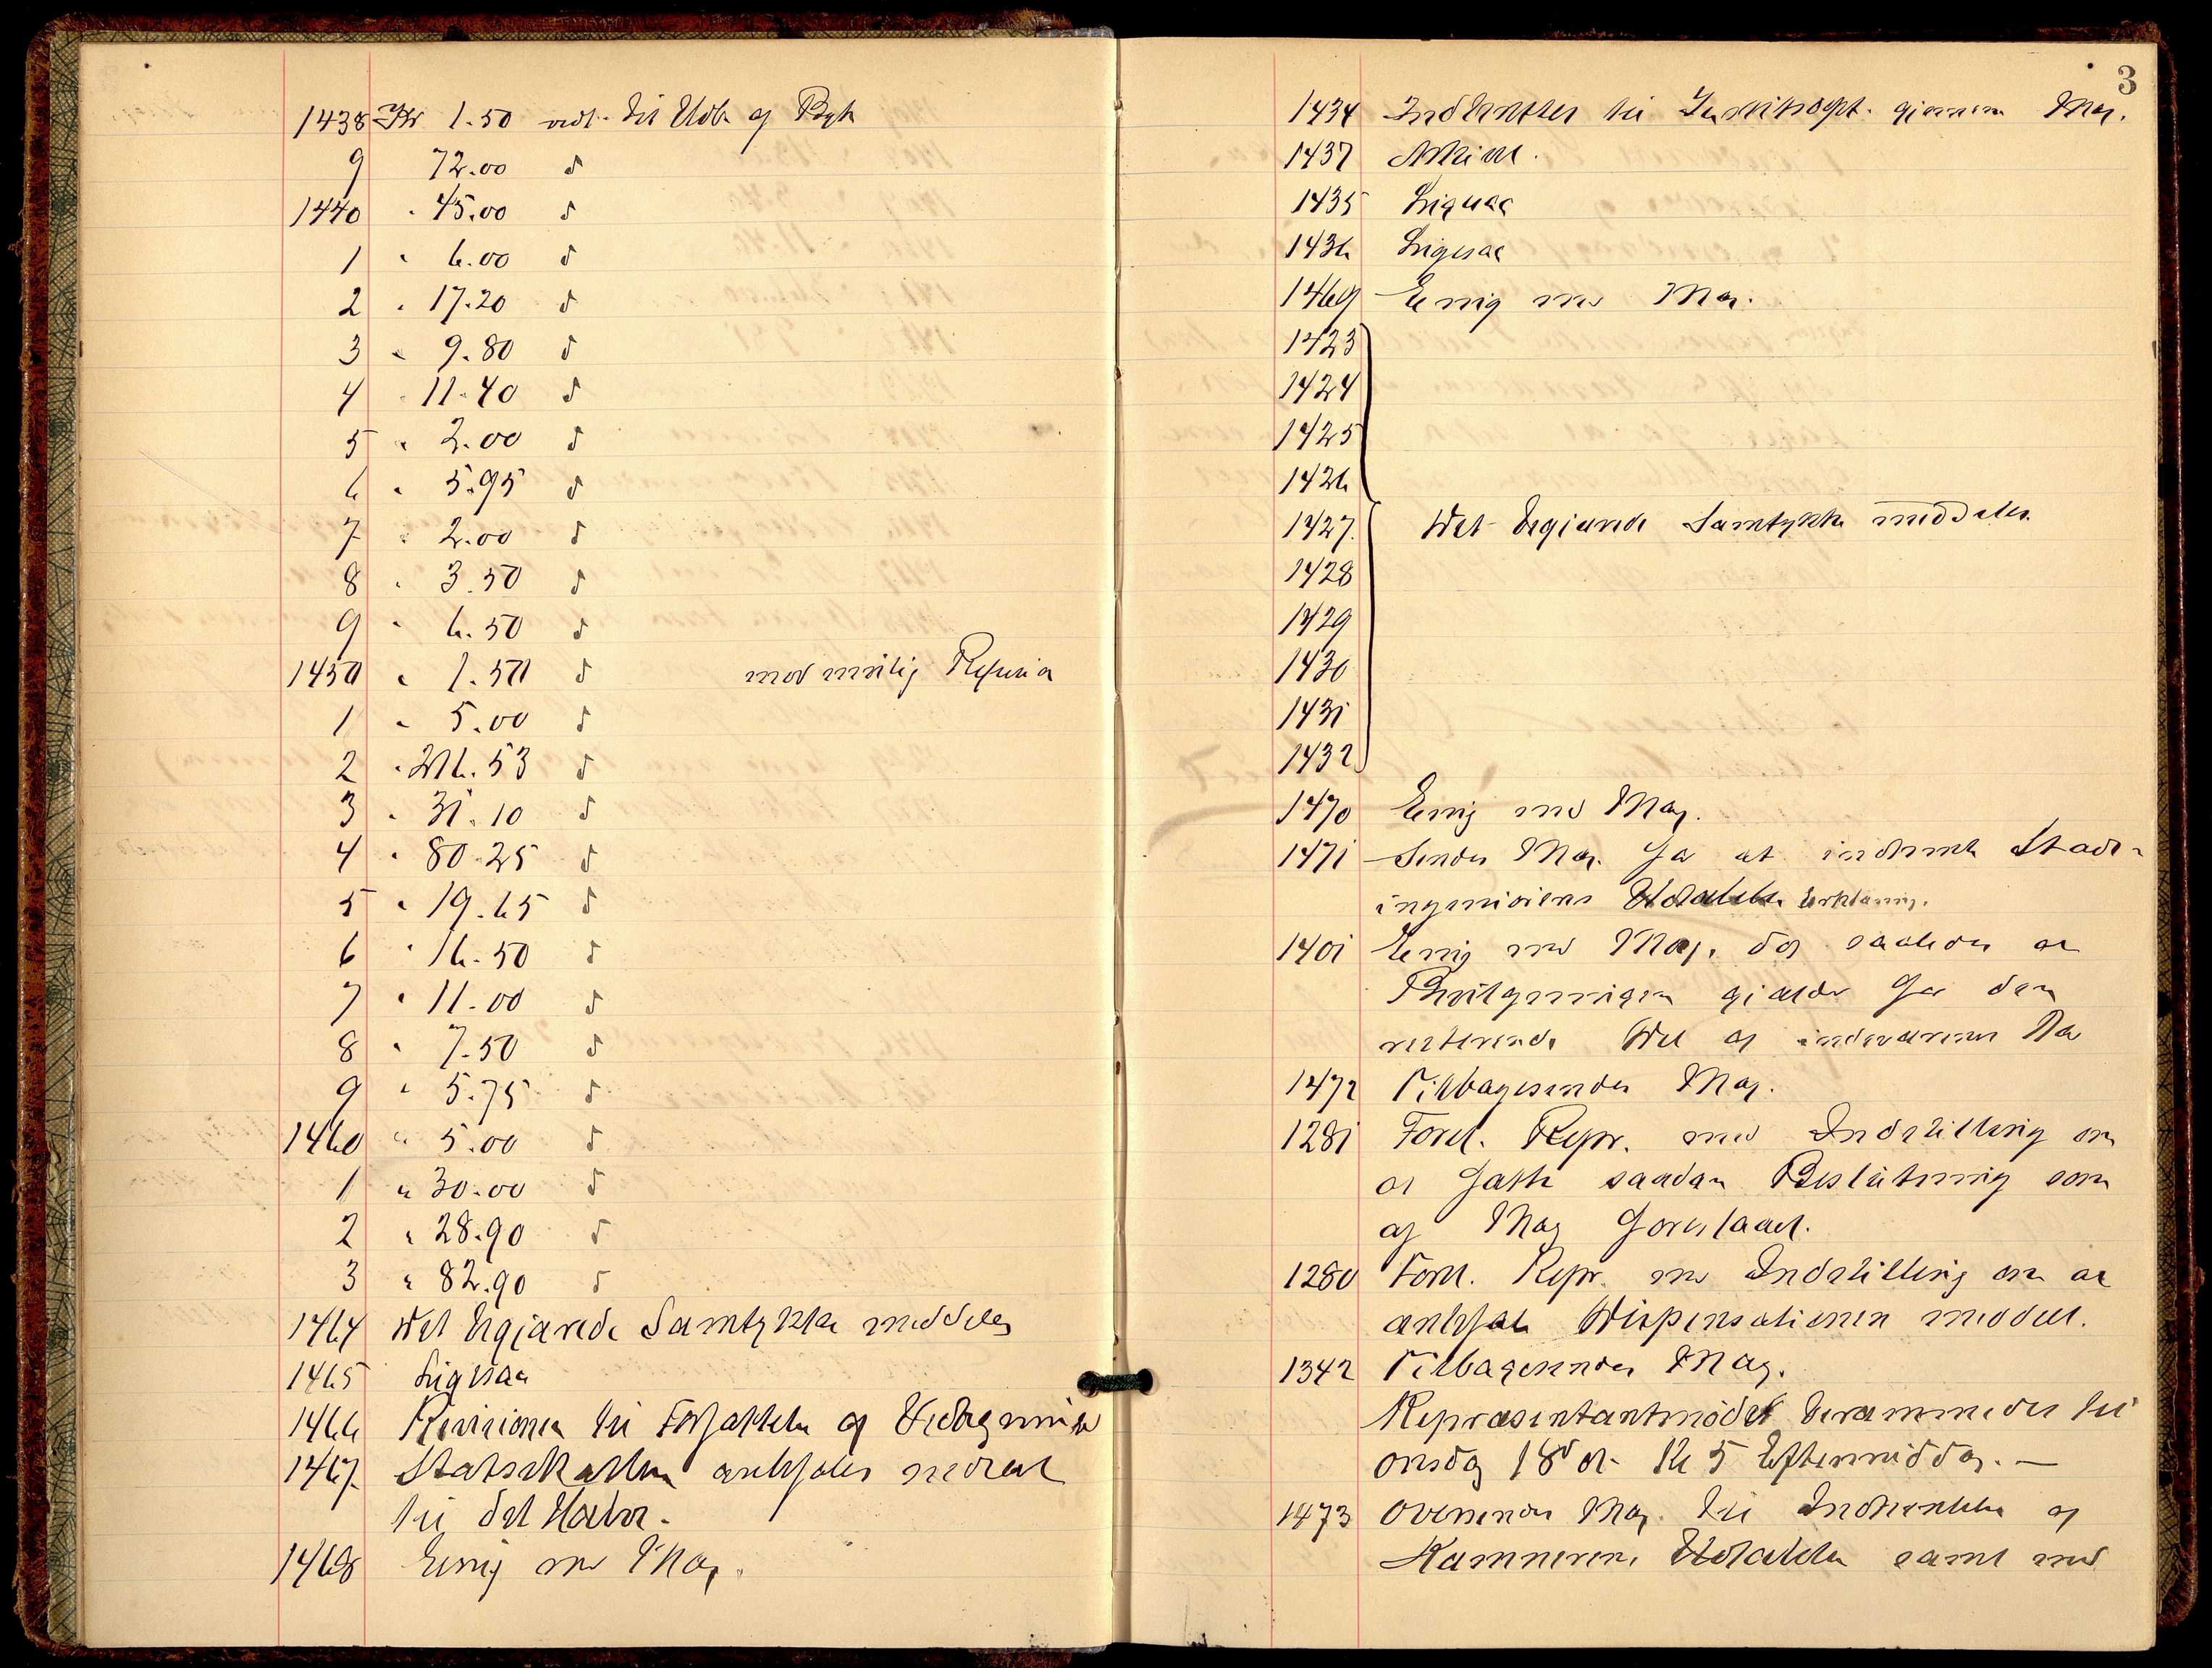 1438 Kr 1.50 vedt. til Udb. og Bgt.
9 72.00 d
1440 " 45.00 d
1 " 6.00 d
2 " 17.20 d
3 " 9.80 d
4 " 11.40 d
5 " 2.00 d
6 " 5.95 d
7 " 2.00 d
8 " 3.50 d
9 " 6.50 d
1450 " 1.50 d mod
1 " 5.00 d
2 " 216.53 d
3 " 31.10 d
4 " 80.25 d
5 " 19.65 d
6 " 16.50 d
7 " 11.00 d
8 " 7.50 d
9 " 5.75 d
1460 " 5.00 d
1 " 30.00 d
2 " 28.90 d
3 " 82.90 d
1464 Det begjærede Samtykke meddeles
1465 Ligesaa
1466 Revisionen til Forfattelse af
1467 Statsskatten anbefales nedsat
til det Halve.
1468 Enig med Mag.
3
1434 Indsendes til gjennem Mag.
1437 Arkivet.
1435 Ligesaa
1436 Ligesaa
1469 Enig med Mag.
1423
1424
1425
1426
1427 Det begjærede Samtykke meddeles
1428
1429
1430
1431
1432
1470 Enig med Mag.
1471 Sendes Mag. for at indhente Stads-
ingeniørens Erklæring.
1401 Enig med Mag. dog saaledes at
Bevilgningen gjælder for den
resterende Del af indeværende Aar
1472 Tilbagesendes Mag.
1281 Forel. Repr. med Indstilling om
at fatte saadan Beslutning som
af Mag foreslaaet.
1280 Forel. Repr. med Indstilling om at
anbefale Dispensationen meddelt.
1342 Tilbagesendes Mag.
Repræsentantmødet berammedes til
onsdag 18 ds. Kl 5 Eftermiddag. —
1473 Oversendes Mag. til Indhentelse af
Kæmnerens Udtalelse samt med